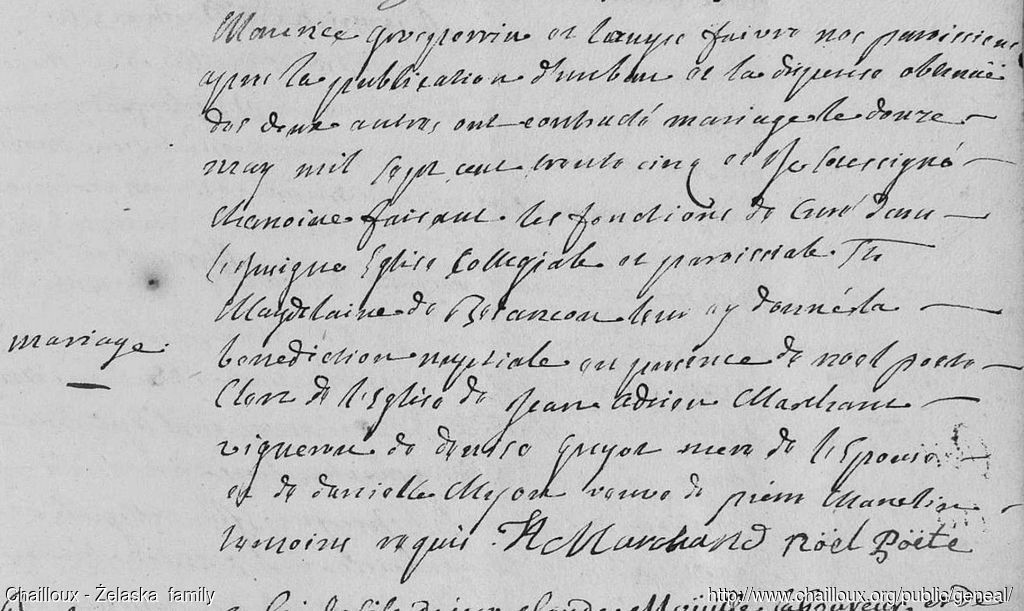 Maurice grosperrin et langue faivre nos paroissiens
apres la publication d'un ban et la dispense obtenue
des deux autres ont contracté mariage le douze
may mil sept cent trente cinq et Je Soussigné
Chanoine faisant les fonctions de Curé dans
l'Insigne Eglise Collegiale et paroissiale Ste
Magdelaine de Besancon leur ay donné la
mariage.
benediction nuptiale en presence de noel poete
Clerc de l'Eglise de Jean Adrien Marchant
vigneron de denise guyot mere de l'Epouse
et de danielle Myon veuve de pierre
temoins requis. Marchand Nöel Pöete
Chailloux - Żelaska family
http://www.chailloux.org/public/geneal/